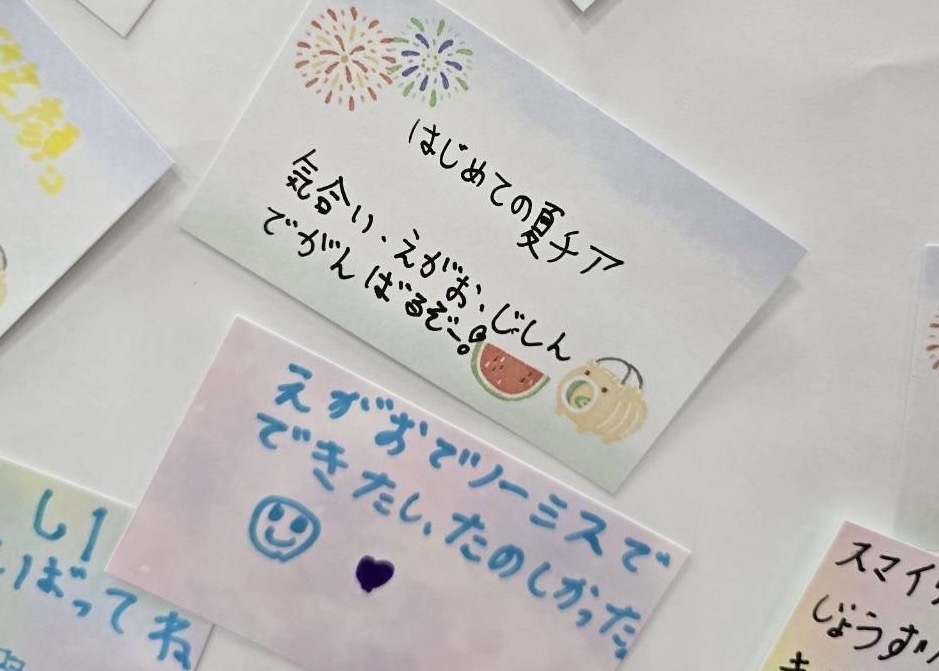 笑顔
はじめての夏チア
気合い、えがお、じしん
でがんばるぞー!
えがおでノーミスで
できたし、たのしかった。
ばってね
スマイ
じょうず